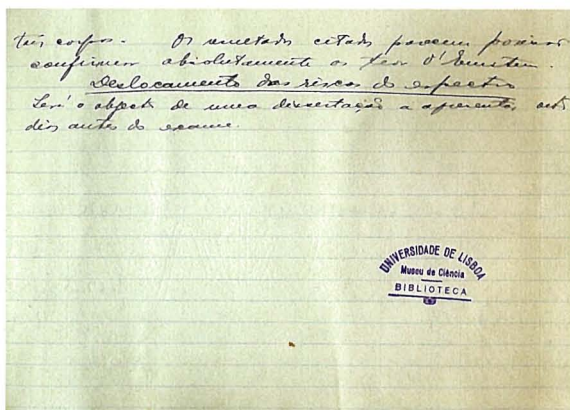 tais corpos. Os resultados citados parecem
confirmar absolutamente as d'Einstein.
Deslocamento das riscas do espectro
Será o objecto de uma dissertação a apresentar, oito
dias antes do exame.
UNIVERSIDADE DE LISBOA
Museu de Ciência
BIBLIOTECA